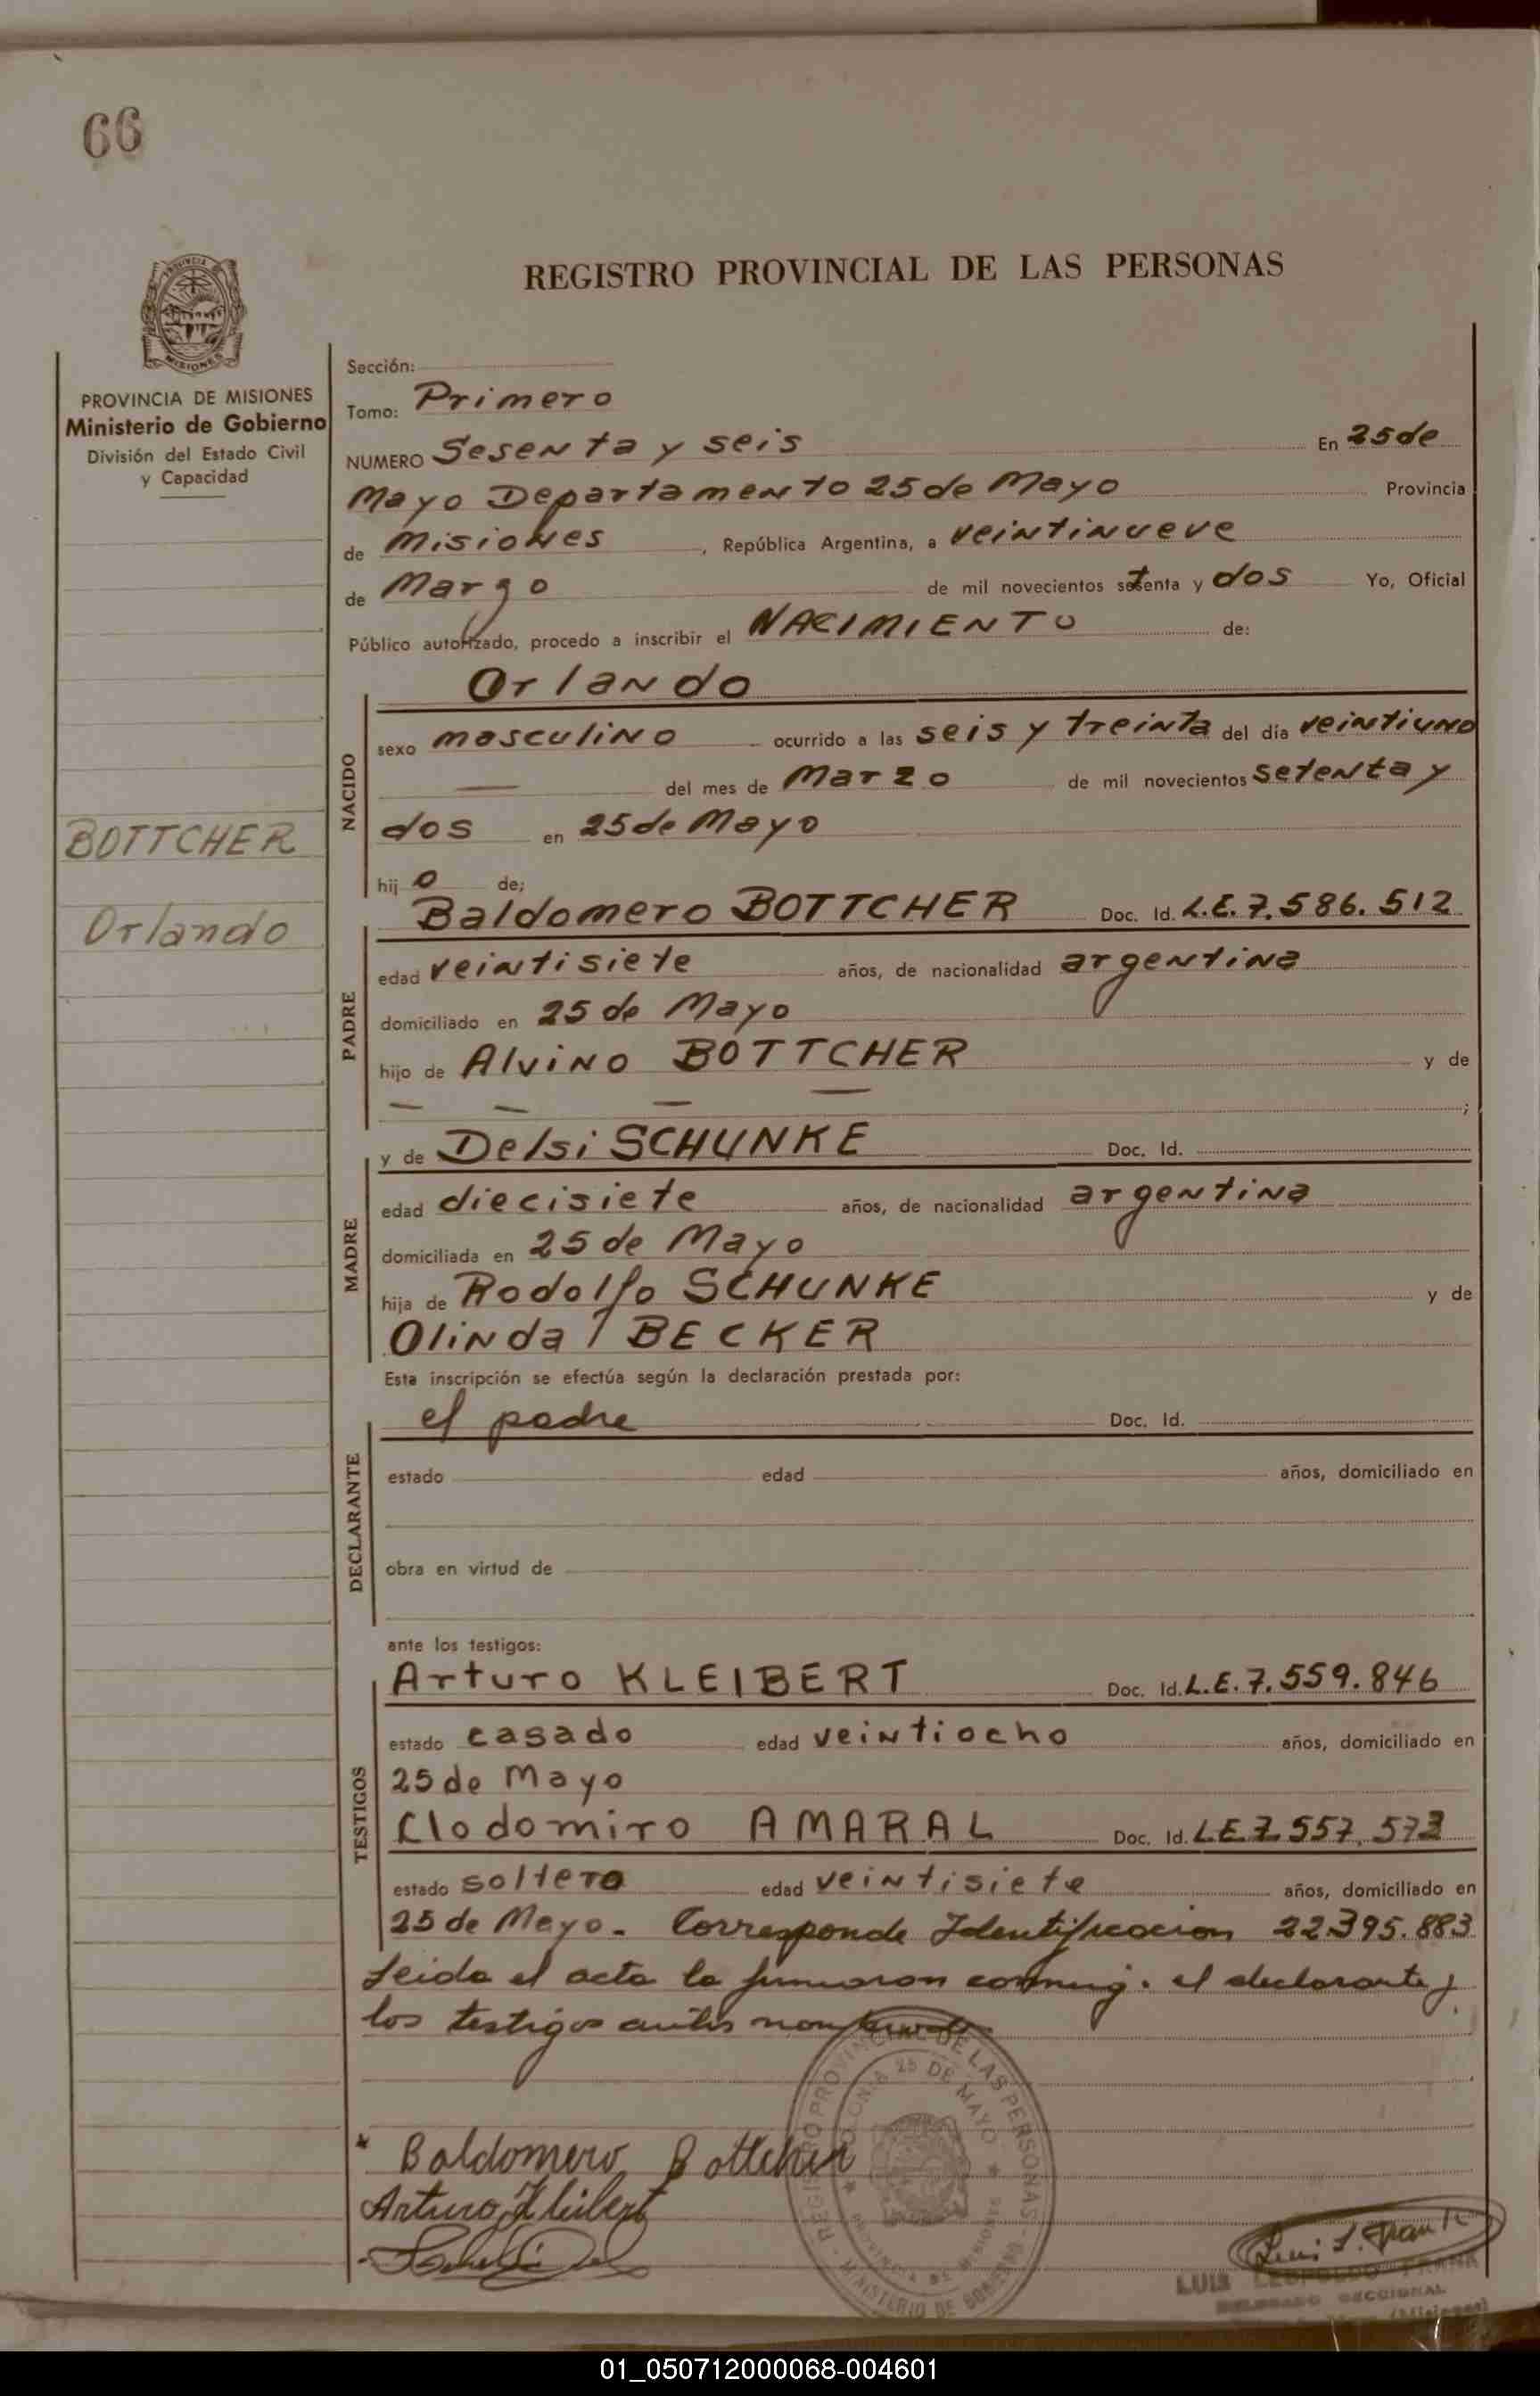 66
REGISTRO PROVINCIAL DE LAS PERSONAS
PROVINCIA
MISIONES
PROVINCIA DE MISIONES
Ministerio de Gobierno
División del Estado Civil
y Capacidad
BOTTCHER
Orlando
Sección:
Tomo: Primero
NUMERO Sesenta y seis En 25 de
Mayo Departamento 25 de Mayo Provincia
de Misiones, República Argentina, a veintinueve
de Marzo de mil novecientos setenta y dos Yo, Oficial
Público autorizado, procedo a inscribir el NACIMIENTO de:
Orlando
NACIDO
sexo masculino ocurrido a las seis y treinta del día veintiuno
— del mes de Marzo de mil novecientos setenta y
dos en 25 de Mayo
hij o de;
Baldomero BOTTCHER Doc. Id. L.E. 7.586.512
PADRE
edad veintisiete años, de nacionalidad argentina
domiciliado en 25 de Mayo
hijo de Alvino BOTTCHER y de
— — — — ;
y de Delsi SCHUNKE Doc. Id.
MADRE
edad diecisiete años, de nacionalidad argentina
domiciliada en 25 de Mayo
hija de Rodolfo SCHUNKE y de
Olinda BECKER
Esta inscripción se efectúa según la declaración prestada por:
el padre Doc. Id.
DECLARANTE
estado edad años, domiciliado en
obra en virtud de
ante los testigos:
Arturo KLEIBERT Doc. Id. L.E. 7.559.846
TESTIGOS
estado casado edad veintiocho años, domiciliado en
25 de Mayo
Clodomiro AMARAL Doc. Id. L.E. 7.557.573
estado soltero edad veintisiete años, domiciliado en
25 de Mayo. Corresponde Identificacion 22395.883
Leida el acta la firmaron conmigo el declarante y
los testigos antes
REGISTRO PROVINCIAL DE LAS PERSONAS
MINISTERIO DE GOBIERNO
COLONIA 25 DE MAYO
PROVINCIA DE MISIONES
Baldomero Bottcher
Arturo Kleibert
Luis L. Frank
LUIS LEOPOLDO
SECCIONAL
(Misiones)
01_050712000068-004601